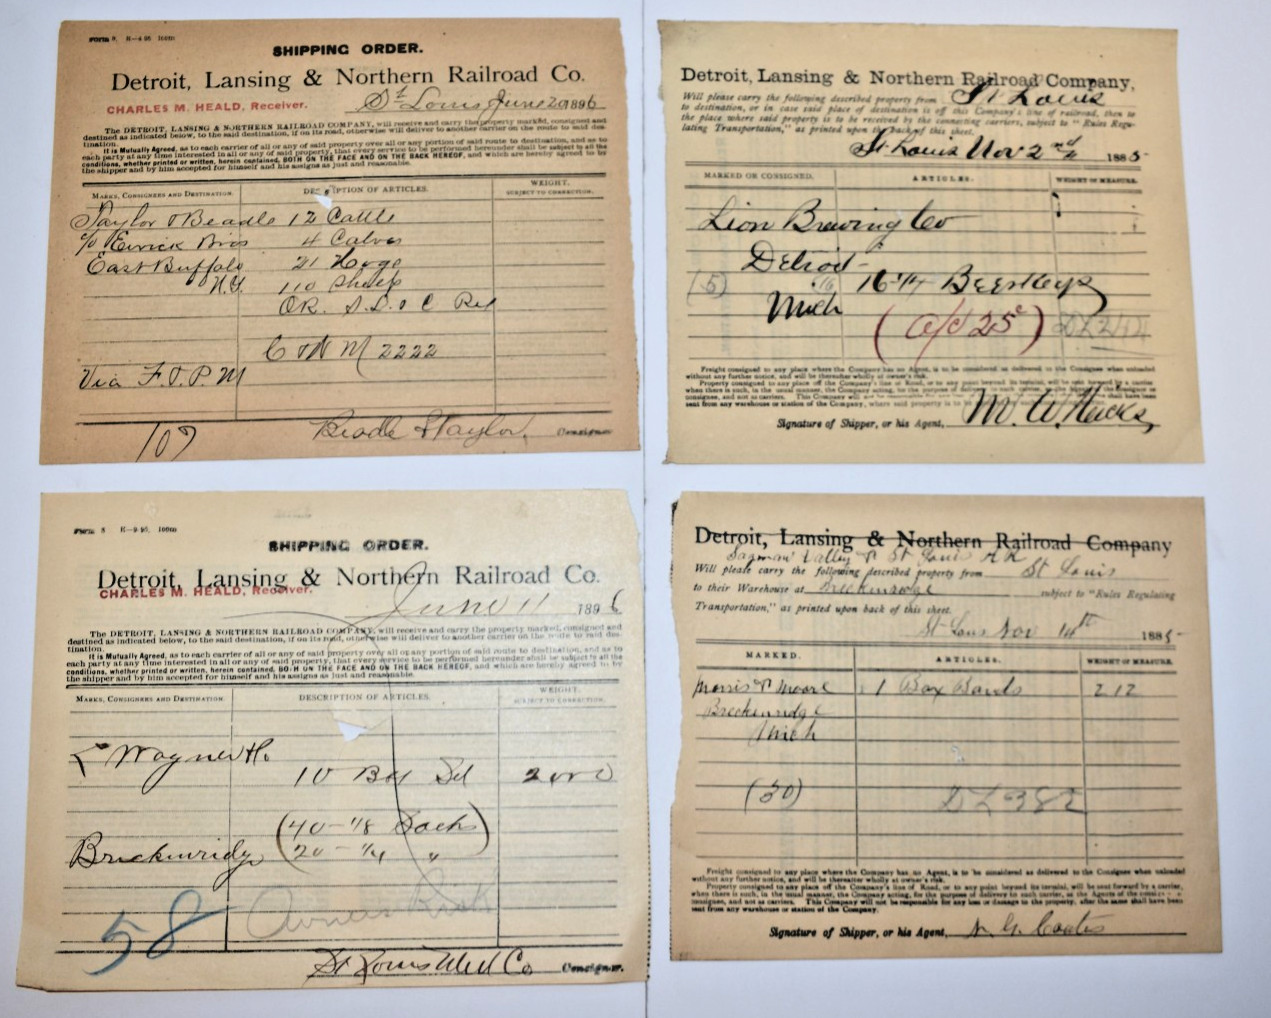 SHIPPING ORDER.
Detroit, Lansing & Northern Railroad Co.
CHARLES M. HEALD, Receiver. St Louis June 20 1896
The DETROIT, LANSING & NORTHERN RAILROAD COMPANY, will receive and carry the property marked, consigned and
destined as indicated below, to the said destination, if on its road, otherwise will deliver to another carrier on the route to said des-
tination.
It is Mutually Agreed, as to each carrier of all or any of said property over all or any portion of said route to destination, and as to
each party at any time interested in all or any of said property, that every service to be performed hereunder shall be subject to all the
conditions, whether printed or written, herein contained, BOTH ON THE FACE AND ON THE BACK HEREOF, and which are hereby agreed to by
the shipper and by him accepted for himself and his assigns as just and reasonable.
MARKS, CONSIGNEES AND DESTINATION. DESCRIPTION OF ARTICLES. WEIGHT.
SUBJECT TO CORRECTION.
Taylor & Beadle 12 Cattle
c/o Bros 4 Calves
East Buffalo 21 Hogs
N.Y. 110 Sheep
OR. S.L. & C Rel
C & N M 2222
Via F. & P. M
107 Beadle & Taylor, Consignor
Detroit, Lansing & Northern Railroad Company,
Will please carry the following described property from St Louis
to destination, or in case said place of destination is off this Company's line of railroad, then to
the place where said property is to be received by the connecting carriers, subject to "Rules Regu-
lating Transportation," as printed upon the back of this sheet.
St. Louis Nov 2nd 1885
MARKED OR CONSIGNED. ARTICLES. WEIGHT OR MEASURE.
Lion Brewing Co
Detroit
(5) 16 1/4 Beer Kegs
Mich
(a/c 25c)
Freight consigned to any place where the Company has no Agent, is to be considered as delivered to the Consignee when unloaded
without any further notice, and will be thereafter wholly at owner's risk.
Property consigned to any place off the Company's line of Road, or to any point beyond its termini, will be sent forward by a carrier
when there is such, in the usual manner, the Company acting, for the purpose of delivery to such carrier, as the Agents of the Consignor or
consignee, and not as carriers. This Company will not be responsible for any loss or damage to the property, after the same shall have been
sent from any warehouse or station of the Company,
Signature of Shipper, or his Agent, M. W. Hucks
SHIPPING ORDER.
Detroit, Lansing & Northern Railroad Co.
CHARLES M. HEALD, Receiver.
June 11 1896
The DETROIT, LANSING & NORTHERN RAILROAD COMPANY, will receive and carry the property marked, consigned and
destined as indicated below, to the said destination, if on its road, otherwise will deliver to another carrier on the route to said des-
tination.
It is Mutually Agreed, as to each carrier of all or any of said property over all or any portion of said route to destination, and as to
each party at any time interested in all or any of said property, that every service to be performed hereunder shall be subject to all the
conditions, whether printed or written, herein contained, BOTH ON THE FACE AND ON THE BACK HEREOF, and which are hereby agreed to by
the shipper and by him accepted for himself and his assigns as just and reasonable.
MARKS, CONSIGNEES AND DESTINATION. DESCRIPTION OF ARTICLES. WEIGHT.
SUBJECT TO CORRECTION.
L Wagner
10 2000
(40 - 1/8 Sacks)
Breckenridge 20 - 1/4 "
Owners Risk
58
St Louis Mill Co Consignor.
Detroit, Lansing & Northern Railroad Company
Saginaw Valley & St Louis RR
Will please carry the following described property from St Louis
to their Warehouse at Breckenridge subject to "Rules Regulating
Transportation," as printed upon back of this sheet.
St Louis Nov 14th 1885
MARKED. ARTICLES. WEIGHT OR MEASURE.
Morris & Moore 1 Box Bands 212
Breckenridge
Mich
(30) DL 382
Freight consigned to any place where the Company has no Agent, is to be considered as delivered to the Consignee when unloaded
without any further notice, and will be thereafter wholly at owner's risk.
Property consigned to any place off the Company's line of Road, or to any point beyond its termini, will be sent forward by a carrier,
when there is such, in the usual manner, the Company acting, for the purpose of delivery to such carrier, as the Agents of the consignor
consignee, and not as carriers. This Company will not be responsible for any loss or damage to the property, after the same shall have been
sent from any warehouse or station of the Company.
Signature of Shipper, or his Agent, N. G. Coates